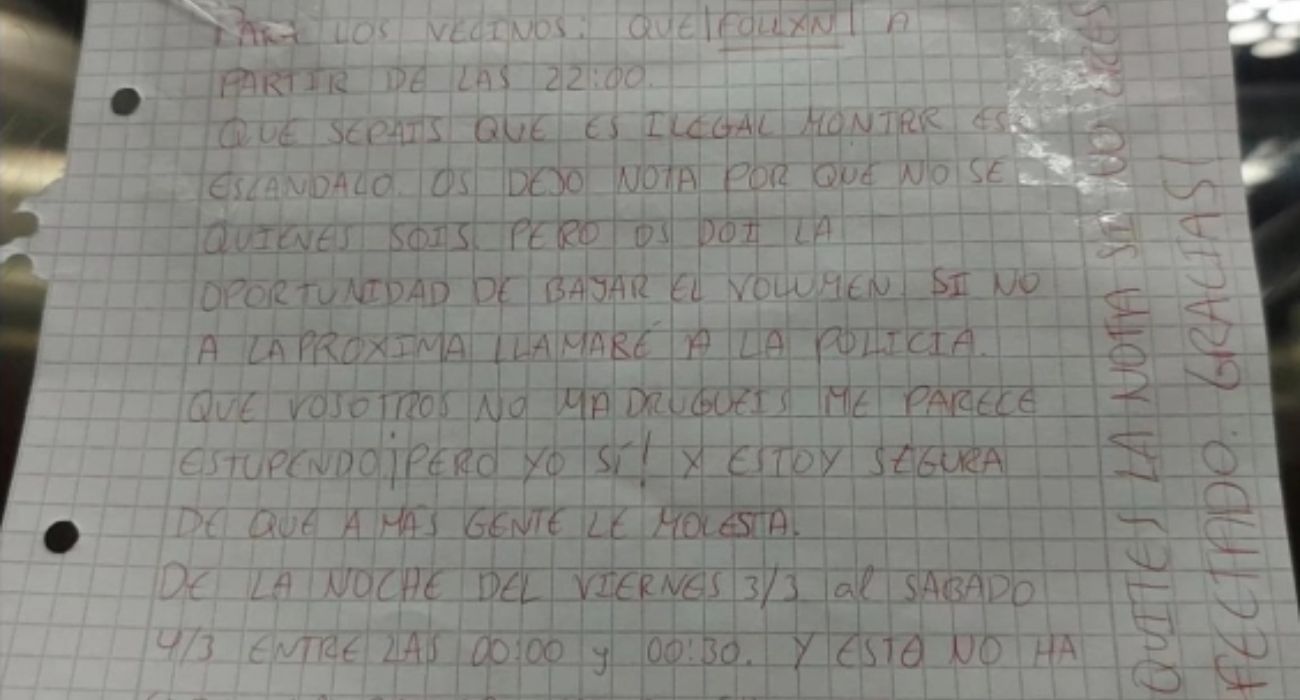 PARA LOS VECINOS: QUE FOLLXN A
PARTIR DE LAS 22:00.
QUE SEPAIS QUE ES ILEGAL MONTAR ESE
ESCANDALO. OS DEJO NOTA POR QUE NO SE
QUIENES SOIS. PERO OS DOI LA
OPORTUNIDAD DE BAJAR EL VOLUMEN SI NO
A LA PROXIMA LLAMARÉ A LA POLICIA.
QUE VOSOTROS NO MADRUGUEIS ME PARECE
ESTUPENDO ¡PERO YO SÍ! Y ESTOY SEGURA
DE QUE A MÁS GENTE LE MOLESTA.
DE LA NOCHE DEL VIERNES 3/3 al SABADO
4/3 ENTRE LAS 00:00 y 00:30. Y ESTO NO HA
QUITES LA NOTA SI NO ERES
AFECTADO. GRACIAS!